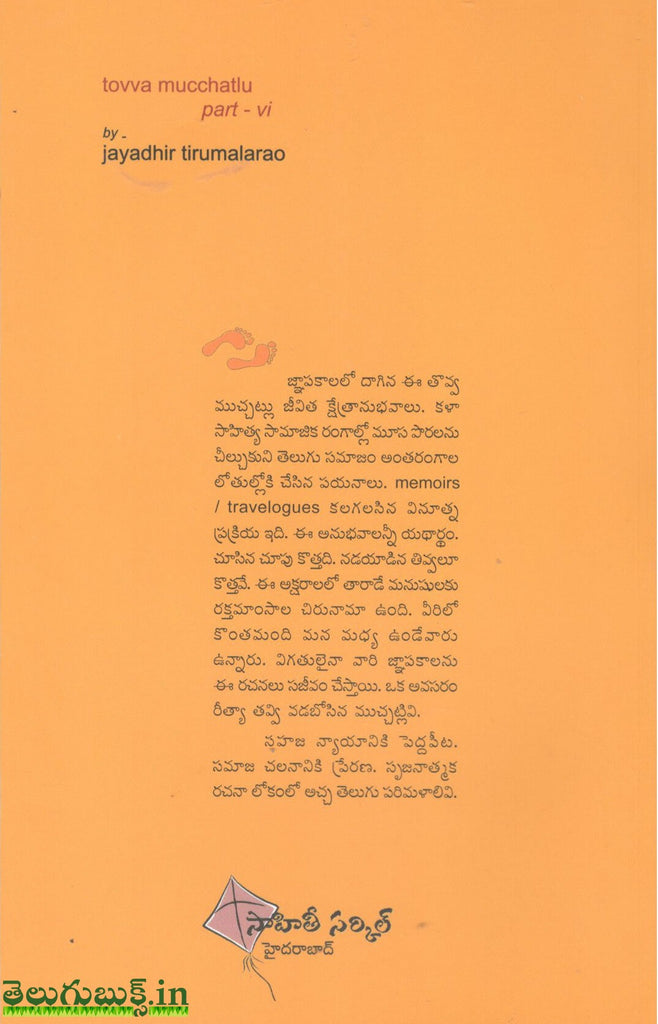 tovva mucchatlu
part - vi
by -
jayadhir tirumalarao
జ్ఞాపకాలలో దాగిన ఈ తొవ్వ
ముచ్చట్లు జీవిత క్షేత్రానుభవాలు. కళా
సాహిత్య సామాజిక రంగాల్లో మూస పొరలను
చీల్చుకుని తెలుగు సమాజం అంతరంగాల
లోతుల్లోకి చేసిన పయనాలు. memoirs
/ travelogues కలగలసిన వినూత్న
ప్రక్రియ ఇది. ఈ అనుభవాలన్నీ యథార్థం.
చూసిన చూపు కొత్తది. నడయాడిన తివ్వలూ
కొత్తవే. ఈ అక్షరాలలో తారాడే మనుషులకు
రక్తమాంసాల చిరునామా ఉంది. వీరిలో
కొంతమంది మన మధ్య ఉండేవారు
ఉన్నారు. విగతులైనా వారి జ్ఞాపకాలను
ఈ రచనలు సజీవం చేస్తాయి. ఒక అవసరం
రీత్యా తవ్వి వడబోసిన ముచ్చట్లివి.
సహజ న్యాయానికి పెద్దపీట.
సమాజ చలనానికి ప్రేరణ. సృజనాత్మక
రచనా లోకంలో అచ్చ తెలుగు పరిమళాలివి.
సాహితీ సర్కిల్
హైదరాబాద్
తెలుగుబుక్స్.in